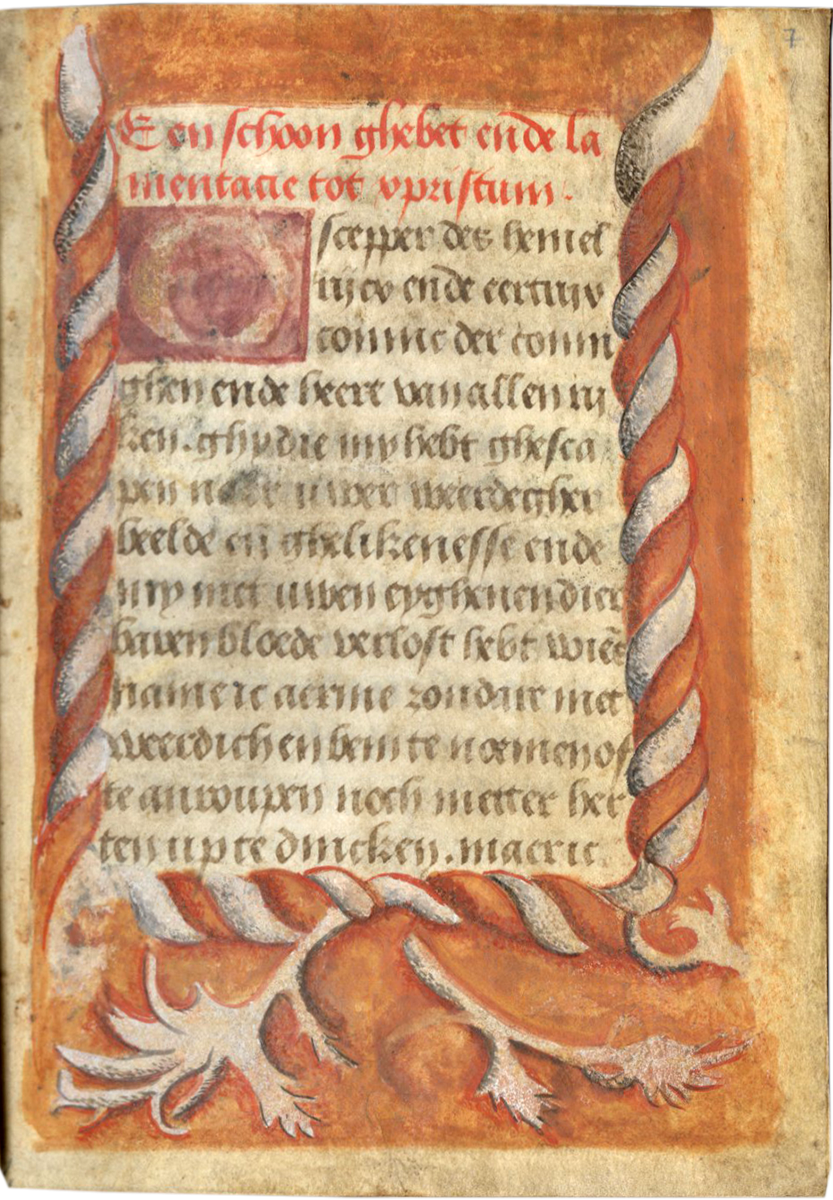 7
Een schoon ghebet ende la
mentacie tot xpristum.
O scepper des hemel
rijcx ende eertrijcx
coninc der conin
ghen ende heere van allen rij
ken. ghy die my hebt ghesca
pen naer uwer weerdegher
beelde en̄ ghelikenesse ende
my met uwen eyghenen dier
baren bloede verlost hebt wiēs
name ic aerme zondare niet
weerdich en bem te noemen of
te anroupen noch metter her
ten up te dincken. maer ic